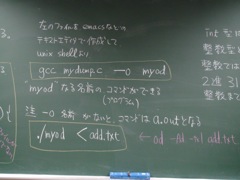 る。
左のファイルを emacs などの
テキストエディタで作成して
unix shell より
gcc mydump.c -o myod
"myod" なる名前の コマンドができる
(プログラム)
注 -o 名前 がないと、コマンドは a.out となる
./myod < add.txt
← od -Ad -tx1 add.txt
int 型に
整数型
整数では
2進 31
整数ま